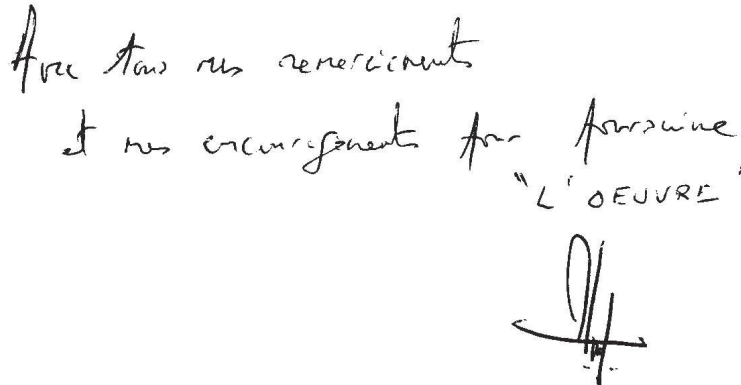 Avec tous mes remerciements
et mes encouragements pour poursuivre
"L'OEUVRE"